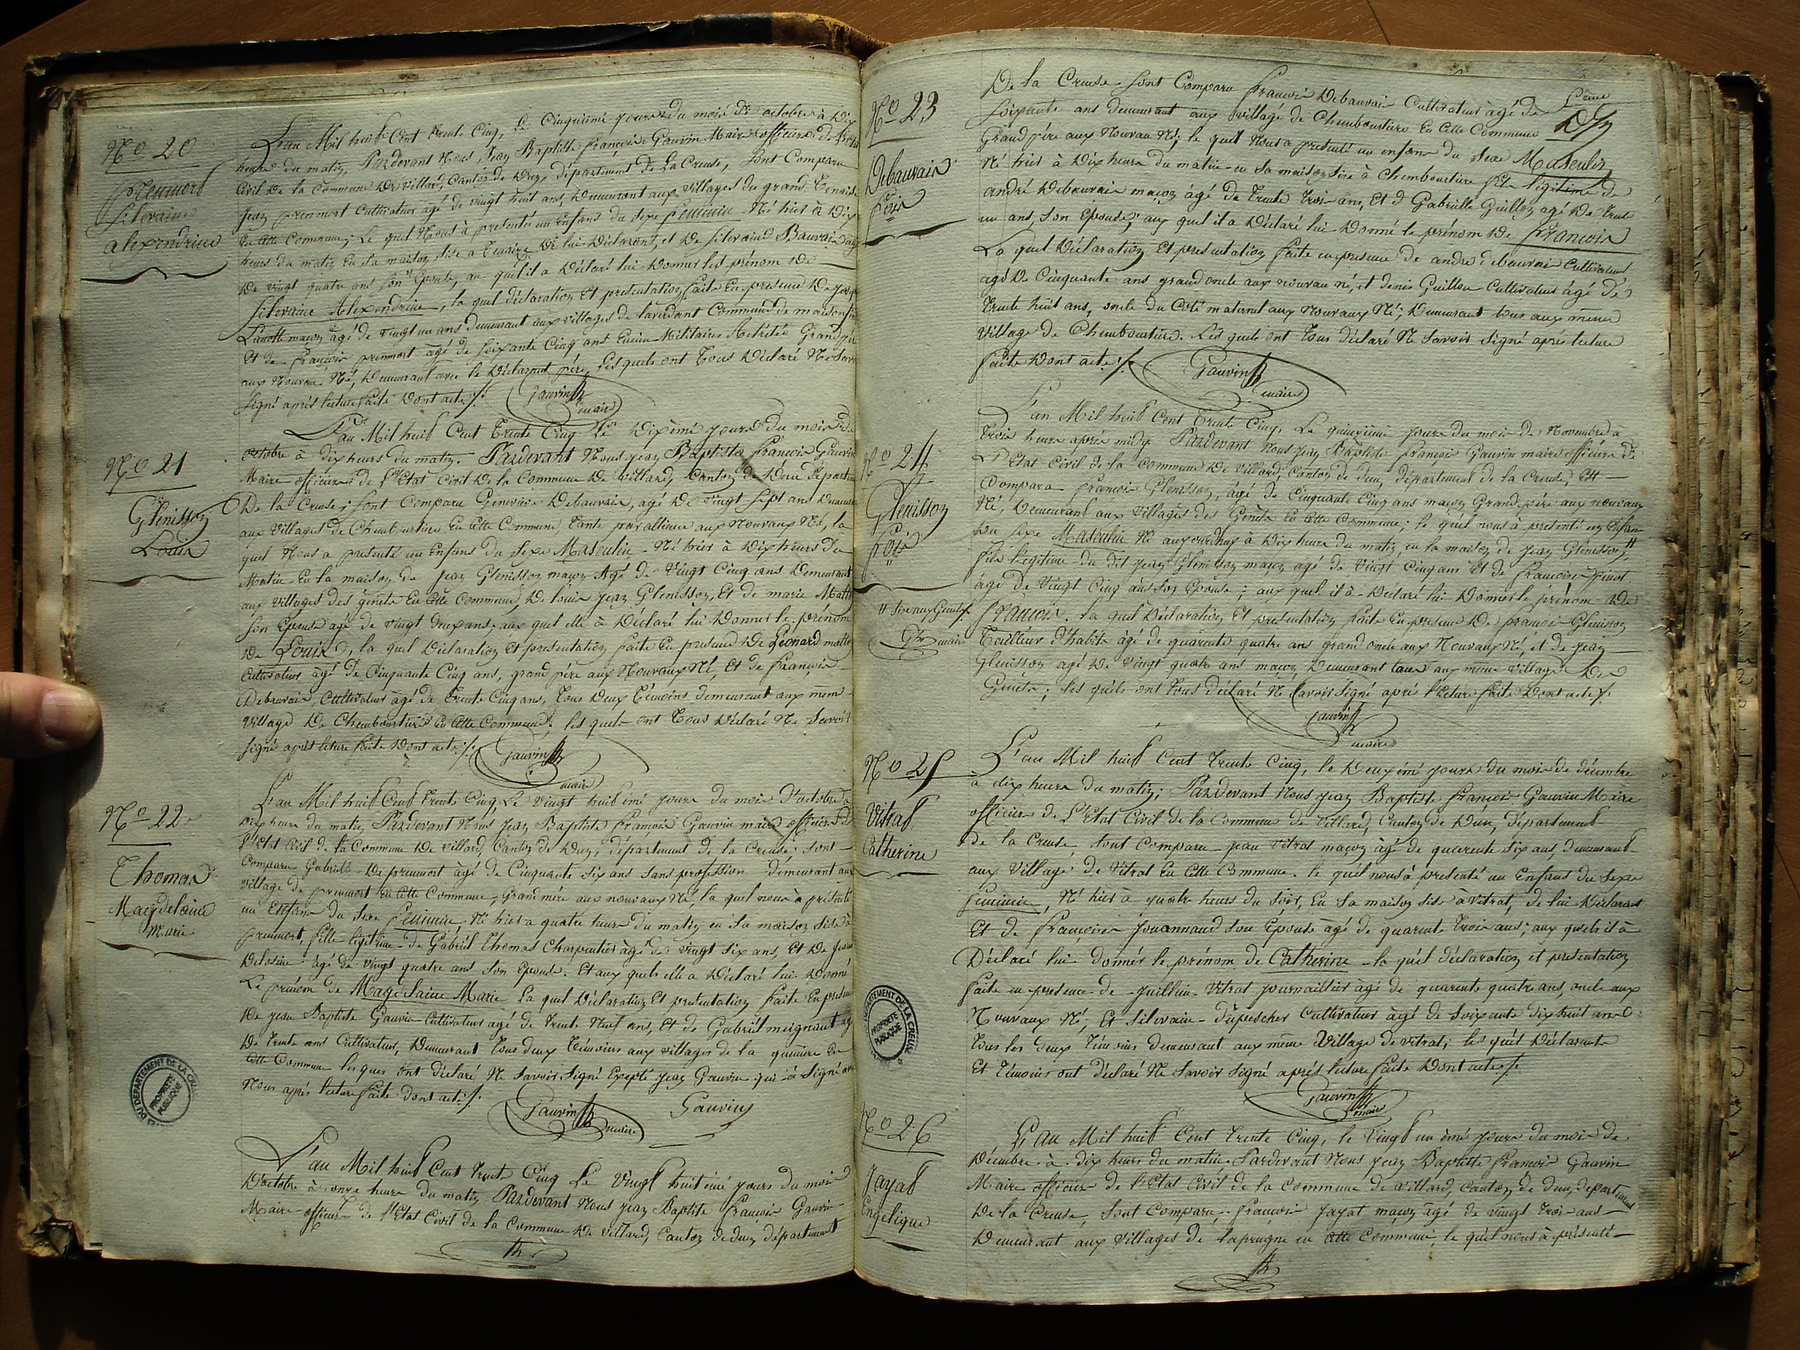 No 20
prenmort
Silvaine
alexendrine
L'an Mil huit Cent trente Cinq, Le Cinquieme jour du mois d'octobre à Dix
heure du matin, Pardevant Nous Jean Baptiste françois Gauvin Maire officier de l'Etat
Civil de la Commune De Villard, Canton de Dun, département de La Creuse, Sont Comparu
Jean prenmort Cultivateur âgé de vingt huit ans, Demeurant aux villages du grand
En Cette Commune; Le quel Nous à presenté un Enfans du sexe feminin Né hier à Dix
heurs du matin En sa maison sise à De lui Déclarant, et De Silvaine Bauvais
De vingt quatre ans son Epouse, au quel il a Déclaré lui Donner les prénom De
Silvaine Alexendrine, la quel déclaration Et presentation faite En presence De
maçon âgé de vingt un ans demeurant aux villages de Commune de
Et de françois prenmort âgé de soixante Cinq ans Encien Militaire Retretté Grand père
aux Nouveau Né, Demeurant avec le Déclarant père, Lesquels ont Tous Déclaré Ne Savoir
Signé après lecture faite Dont acte ./.
Gauvin
maire
No 21
Glenisson
Louis
L'an Mil huit Cent Trente Cinq Le Dixieme jour du mois de
octobre à dix heurs du matin. Pardevant Nous Jean Baptiste François Gauvin
Maire officier de l'Etat Civil De la Commune De Villard, Canton de Dun département
De la Creuse, sont Comparu Genevieve Debauvais, âgé De vingt sept ans Demeurant
aux Villages de Chemboutiere En Cette Commune, tante aux Nouvaux Né, la
quel Nous a presenté un Enfans du sexe Masculin Né hier à Dix heurs du
Matin En la maison de Jean Glenisson maçon Agé de Vingt Cinq ans Demeurant
aux villages des genéts En Cette Commune, De Jean Glenisson, Et de marie
son Epouse agé de vingt ans; aux quel elle à Déclaré lui Donner le prénom
De Louis, la quel Déclaration Et presentation faite En presence De Léonard
Cultivateur âgé de Cinquante Cinq ans, grand père aux Nouvaux Né, Et de françois
Debauvais, Cultivateur âgé de Trente Cinq ans, Tous Deux Temoins demeurant aux même
Village De Chemboutiere En Cette Commune; les quels ont Tous Déclaré Ne Savoir
Signé après lecture faite Dont acte ./.
Gauvin
maire
No 22
Thomas
Magdelaine
Marie
L'an Mil huit Cent Trente Cinq Le Vingt huit ième jour du mois d'octobre à
heure du matin Pardevant Nous Jean Baptiste françois Gauvin maire officier de
l'Etat Civil de la Commune De Villard Canton de Dun, département de la Creuse; sont
Comparu Gabriele Deprenmort âgé de Cinquante Six ans Sans profession demeurant aux
Village de prenmort En Cette Commune, Grand mère aux nouvaux Né, la quel nous à présenté
un Enfans du sexe feminin, Né hier a quatre heurs du matin en sa maison sise à
prenmort, fille legitime de Gabriel Thomas Charpentier âgé de Vingt six ans, Et De
âgé de vingt quatre ans son Epouse. Et aux quels elle a Déclaré lui Donné
Le prénom de Magdelaine Marie la quel Déclaration Et presentation faite En presence
De Jean Baptiste Gauvin Cultivateur agé de trente Neuf ans, Et de Gabriel meignaut agé
De trente ans Cultivateur, Demeurant Tous deux Temoins aux villages de la En
Cette Commune les ques ont déclaré Ne Savoir Signé Exepté Jean Gauvin qui à Signé avec
Nous après lecture faite dont acte ./.
Gauvin
maire
Gauvin
L'an Mil huit Cent trente Cinq Le Vingt huit ième jour du mois
D'octobre à onze heure du matin Pardevant Nous Jean Baptiste françois Gauvin
Maire officier de l'Etat Civil de la Commune De Villard, Canton de Dun, département
DU DEPARTEMENT DE LA CREUSE
PROPRIÉTÉ PUBLIQUE
No 23
Debauvais
De la Creuse Sont Comparu françois Debauvais Cultivateur âgé de
Soixante ans demeurant aux village de Chemboutiere En Cette Commune
Grand père aux Nouvau Né; le quel Nous a presenté un enfans du sexe Masculin
Né hier à Dix heure du matin en sa maison sise à Chemboutiere fils legitime de
andré Debauvais maçon âgé de Trente Trois ans, Et d Gabrielle Guillon agé De trente
un ans, son Epouse; aux quel il a Déclaré lui Donné le prénom De francois
La quel Declaration Et presentation faite en presence de andre debauvais Cultivateur
agé De Cinquante ans grand oncle aux nouvau né, et denis Guillon Cultivateur âgé De
Trente huit ans, oncle du Coté maternel aux Nouvaux Né; Demeurant tous aux même
Village de Chemboutiere. Les quels ont Tous déclaré Ne Savoir Signé apres lecture
faite Dont acte ./.
Gauvin
maire
No 24
Glenisson
L'an Mil huit Cent Trente Cinq, Le quinzieme jour du mois de Novembre à
trois heure après midy Pardevant Nous Jean Baptiste françois Gauvin maire officier de
L'Etat Civil de la Commune De Villard, Canton de dun, département de la Creuse, Est
Comparu francois Glenisson, âgé de Cinquante Cinq ans maçon Grand père aux nouvaux
Né, Demeurant aux Villages des Genéts En Cette Commune; le quel nous à présenté un Enfan
Du sexe Masculin Né aujourdhuy à Dix heure du matin, en la maison de Jean Glenisson //
fils legitime du dit Jean Glenisson maçon agé de Vingt Cinq ans Et de francoise Pinot
age de Vingt Cinq ans son Epouse; aux quel il à Déclaré lui Donner le prénom De
francois, la quel Déclaration Et presentation faite En presence De francois Glenisson
Tailleur d'habits âgé de quarente quatre ans grand oncle aux Nouvaux Né, et de Jean
Glenisson agé De Vingt quatre ans maçon Demeurant tous aux même village Des
Genéts; les quels ont Tous déclaré Ne Savoir Signé apres lecture faite Dont acte ./.
// sise aux Genéts
maire
Gauvin
maire
No 25
Vitrat
Catherine
L'an Mil huit Cent Trente Cinq, le Deux ième jour du mois de décembre
à dix heure du matin; Pardevant Nous Jean Baptiste francois Gauvin Maire
officier de l'Etat Civil de la Commune de Villard, Canton de Dun, département
De la Creuse, Sont Comparu Jean Vitrat maçon âgé de quarente six ans, demeurant
aux Village de Vitrat En Cette Commune. le quel nous à présenté un Enfans du sexe
feminin, Né hier à quatre heurs du Soir, En Sa maison sise à Vitrat, de lui Déclarant
Et de françoise Jouannaud son Epouse âgé de quarente trois ans; aux quels il à
Déclaré lui donner le prénom de Catherine la quel déclaration et presentation
faite en presence de Guillien Vitrat journaillier âgé de quarente quatre ans, oncle aux
Nouvaux Né, Et Silvain dupescher Cultivateur âgé de Soixante dix huit ans
tous les deux Témoins demeurant aux même Village de Vitrat; les quel Déclarants
Et Témoins ont déclaré Ne Savoir Signé après lecture faite Dont acte ./.
Gauvin
maire
DU DEPARTEMENT DE LA CREUSE
PROPRIÉTÉ PUBLIQUE
No 26
Jayat
Engelique
L'an Mil huit Cent trente Cinq, le Vingt un ième jour du mois de
Décembre à dix heurs du matin Pardevant Nous Jean Baptiste francois Gauvin
Maire officier de l'Etat Civil de la Commune de Villard, Canton de dun, departement
De la Creuse, Sont Comparu, françois Jayat maçon âgé de vingt trois ans
Demeurant aux Villages de laprugne en Cette Commune, le quel nous à présenté